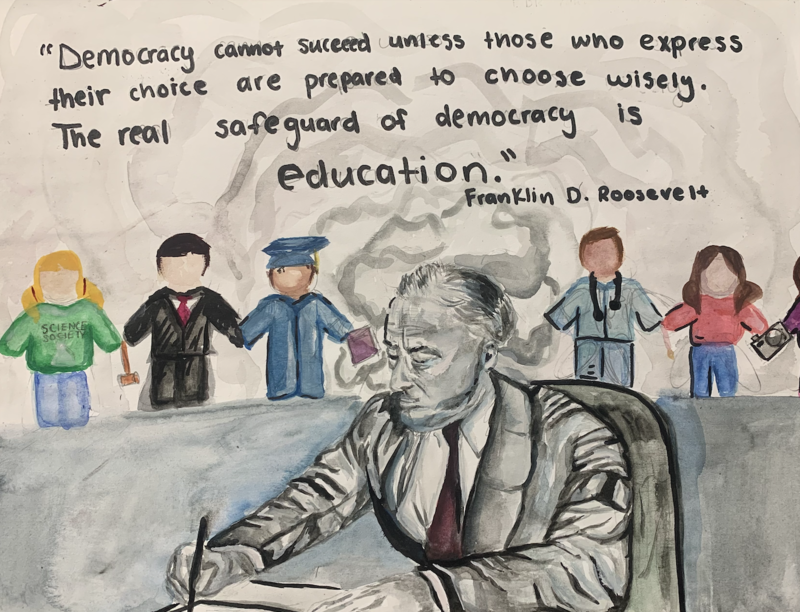 "Democracy cannot succeed unless those who express
their choice are prepared to choose wisely.
The real safeguard of democracy is
education."
Franklin D. Roosevelt
SCIENCE
SOCIETY